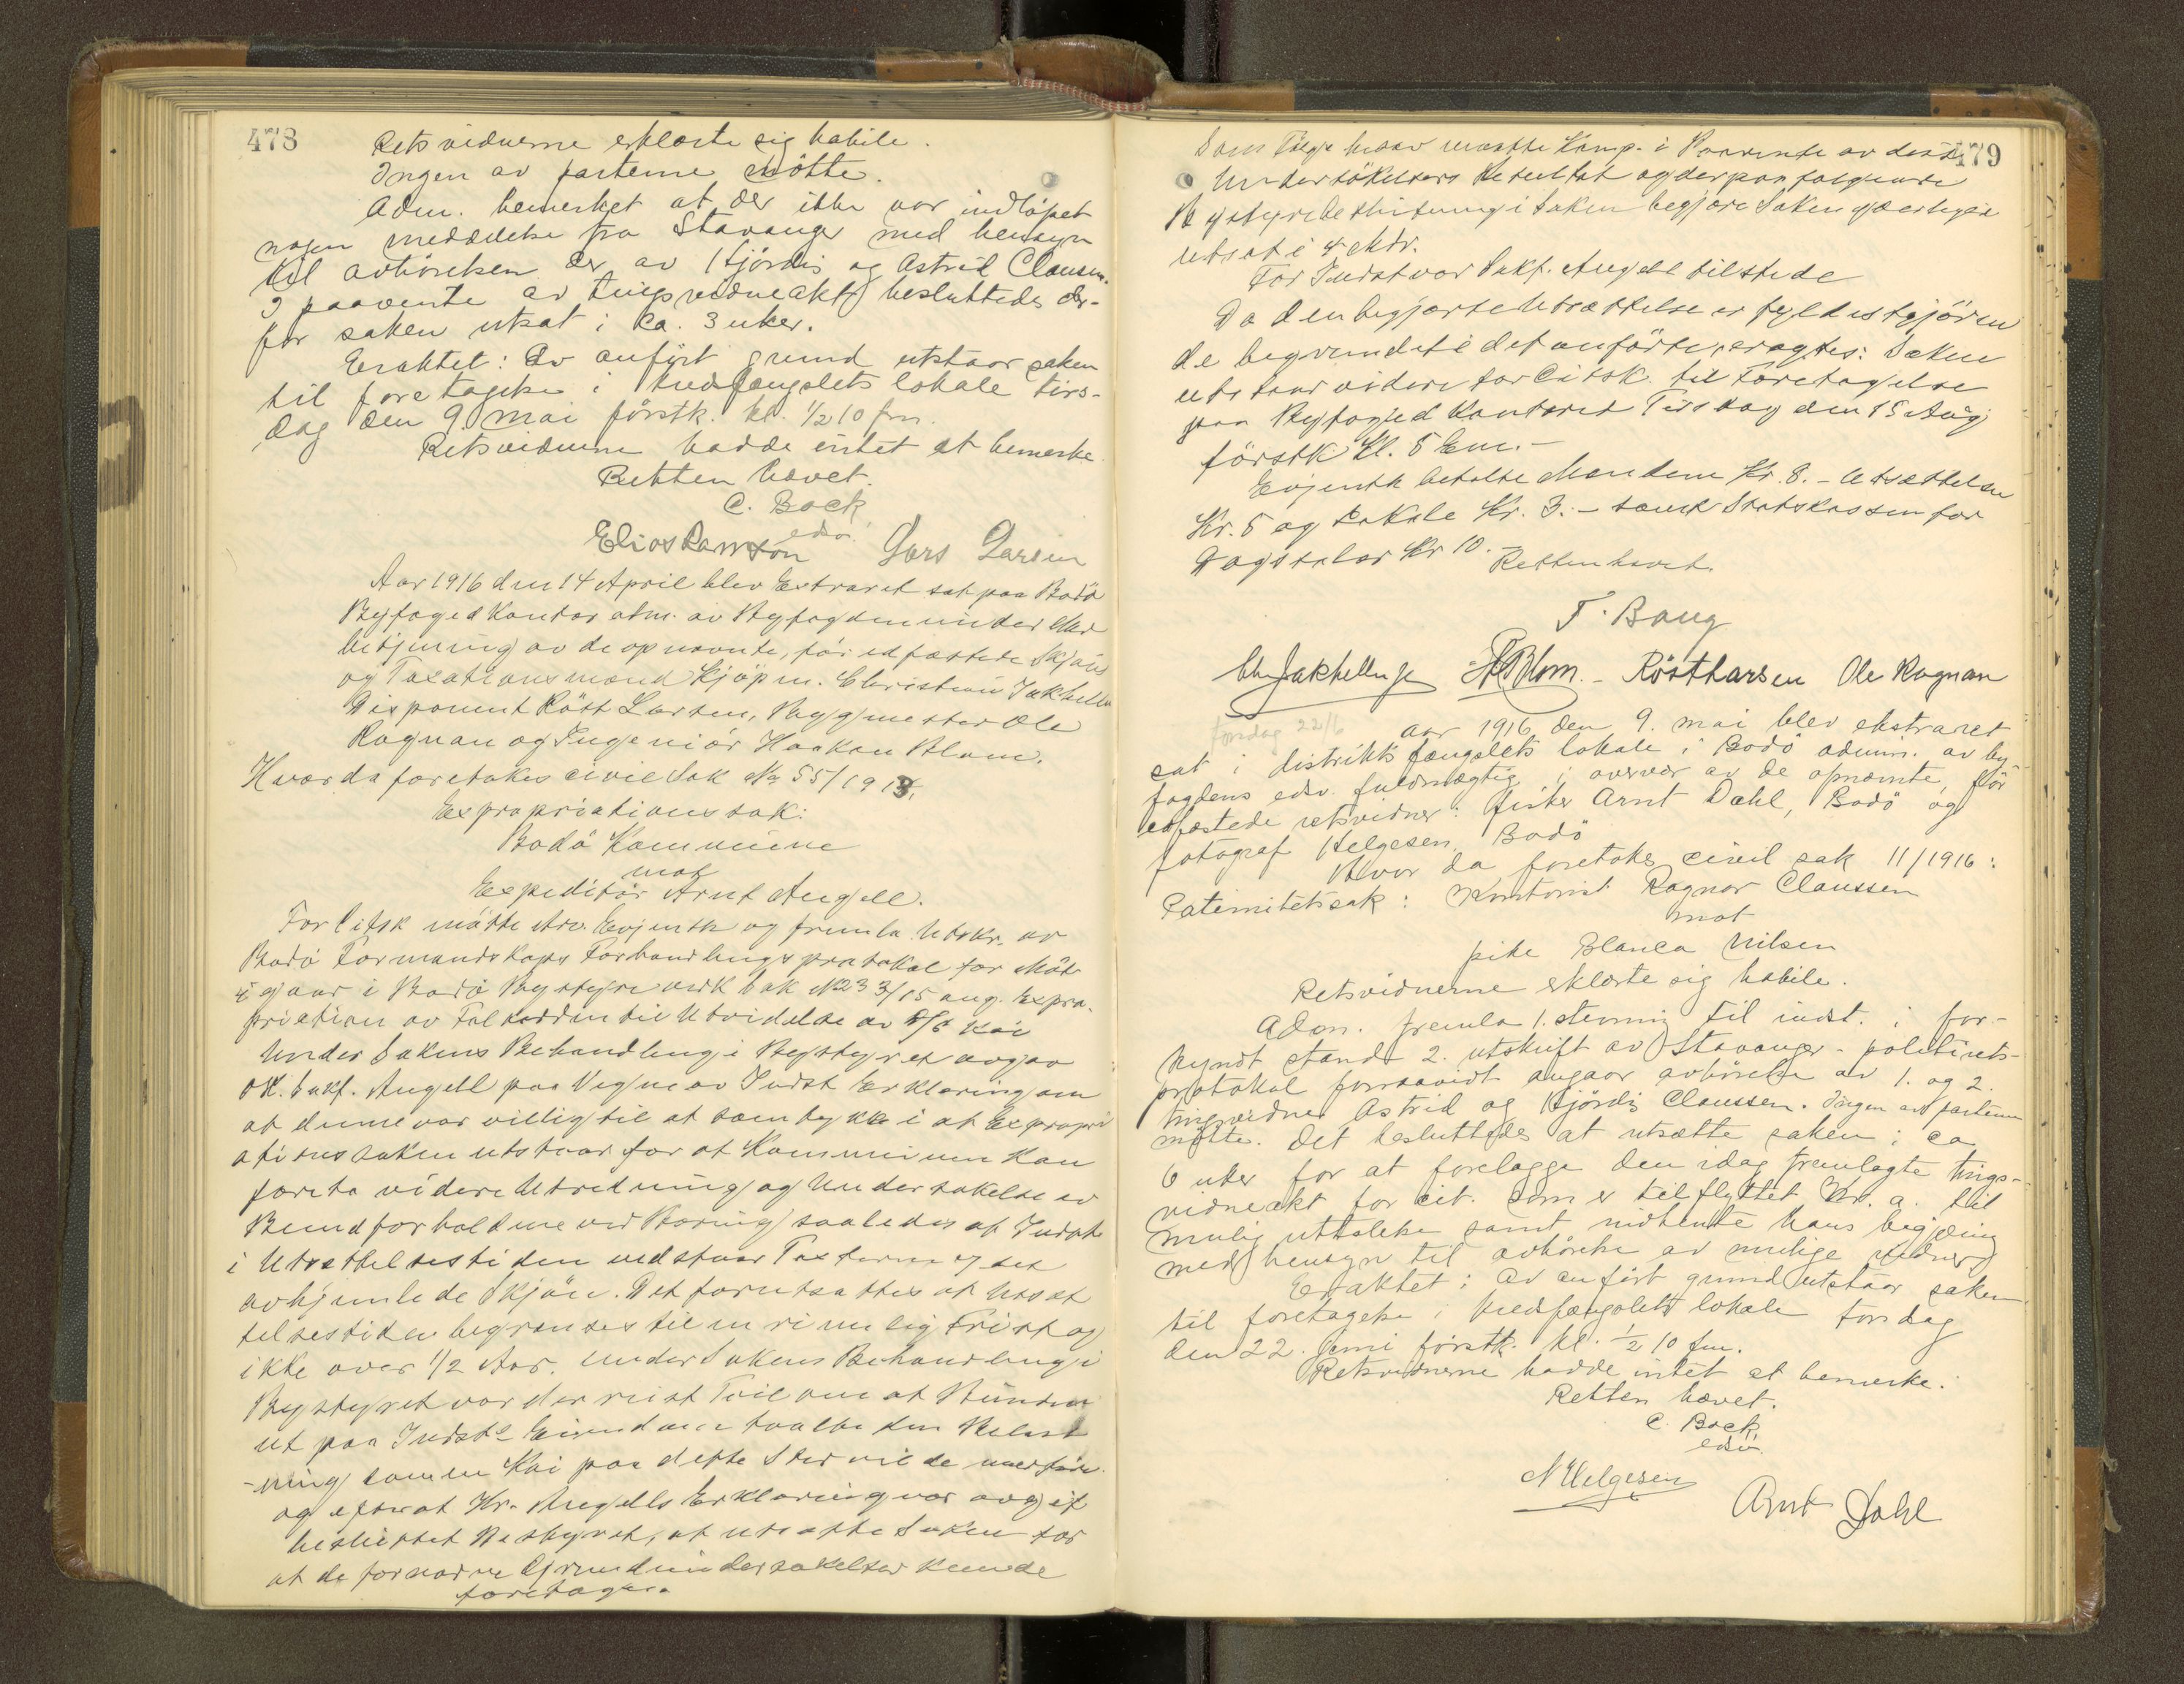 478
Retsvidnerne erklærte sig habile.
Ingen av parterne møtte.
Adm. bemerket at der ikke var indløpet
nogen meddelelse fra Stavanger med hensyn
til avhörelsen der av Hjördis og Astrid Clausen.
I paavente av tingsvidneakt besluttedes der-
for saken utsat i ca. 3 uker.
Eraktet: Av anfört grund utstaar saken
til foretagelse i kredsfængslets lokale tirs-
dag den 9. mai förstk. kl. 1/2 10 fm.
Retsvidnerne hadde intet at bemerke.
Retten hævet.
C. Bock
edsv.
Elias Damson Lars Larsen
Aar 1916 den 14 April blev Extraret sat paa Bodö
Byfogedkontor adm. av Byfogden under Med
betjening av de opnævnte, för edfæstede Skjöns
og Taxationsmænd Kjöpm. Christian Jakhelln
Disponent Röst Larsen, Byggmester Ole
Rognan og Ingeniör Haakon Blom.
Hvor da foretokes civil Sak No 55/1913.
Expropriationssak:
Bodö Kommune
mot
Expeditör Arnt Angell.
For Citsk mötte Adv. Evjenth og fremla Utskr. av
Bodö Formandskaps Forhandlingsprotokol for Möte
igaar i Bodö Bystyre verk Sak No 233/15 ang. Expro-
priation av Falkodden til Utvidelse av D/S Kai
Under Sakens Behandling i Bystyret avgav
OR. Sakf. Angell paa Vegne av Indst Erklæring om
at denne var villig til at samtykke i at Expropri
ationssaken utstaar for at Kommunen kan
foreta videre Utredning og Undersøkelse av
Bundforholdene ved Boring saaledes at Indst
i Utsættelsestiden vedstaar Taxterne og det
avhjemlede Skjön. Det forutsattes at Utsæt
telsestiden begrænses til en rimelig Frist og
ikke over 1/2 Aar. Under Sakens Behandling i
Bystyret var der reist Tvil om at Bunden
ut paa Indsts Eiendom taalte den Belast
-ning som en Kai paa dette Sted vilde medföre
og efterat Hr. Angells Erklæring var avgit
besluttet Bystyret, at utsætte Saken for
at de fornødne Grundundersøkelser kunde
foretages.
479
Som Følge herav maatte Komp. i Paavente av disse
Undersökelsers Resultat og derpaa følgende
Bystyrebeslutning i Saken begjære Saken yderligere
utsat i 4 Mdr.
For Indst var Sakf. Angell tilstede
Da den begjærte Utsættelse er fyldestgjören
de begrundet i det anførte, eragtes: Saken
utstaar videre for Citsk. til Foretagelse
paa Byfogedkontoret Tirsdag den 15 Aug
förstk Kl. 5 Em.-
Evjenth betalte Mændene Kr. 8.- Utsættelsen
Kr. 5 og Lokale Kr. 3.- samt Statskassen for
Dagstaler Kr 10.-
Retten hævet.
T. Bang
Chr Jakhelln jr HBlom. - Röst Larsen Ole Rognan
torsdag 22/6
Aar 1916 den 9. mai blev ekstraret
sat i distriktsfængslets lokale i Bodö admin. av by-
fogdens edsv. fuldmægtig i overvær av de opnævnte, för
edfæstede retsvidner: fisker Arnt Dahl, Bodö og
fotograf Helgesen, Bodö
Hvor da foretokes civil sak 11/1916:
Paternitetssak: Kontorist Ragnar Claussen
mot
pike Blanca Nilsen
Retsvidnerne erklærte sig habile.
Adm. fremla 1. stevning til indst. i for-
kyndt stand 2. utskrift av Stavanger politirets-
protokol forsaavidt angaar avhörelse av 1. og 2.
tingsvidne Astrid og Hjördis Claussen. Ingen av parterne
mötte. Det besluttedes at utsætte saken i ca
6 uker for at forelægge den idag fremlagte tings-
vidneakt for cit. som er tilflyttet Kr. a. til
mulig uttalelse samt indhente hans begjæring
med hensyn til avhörelse av mulige vidner.
Eraktet: Av anfört grund utstaar saken
til foretagelse i kredsfængslets lokale torsdag
den 22. juni förstk. kl. 1/2 10 fm.
Retsvidnerne hadde intet at bemerke.
Retten hævet.
C. Bock,
edsv.
N Helgesen Arnt Dahl